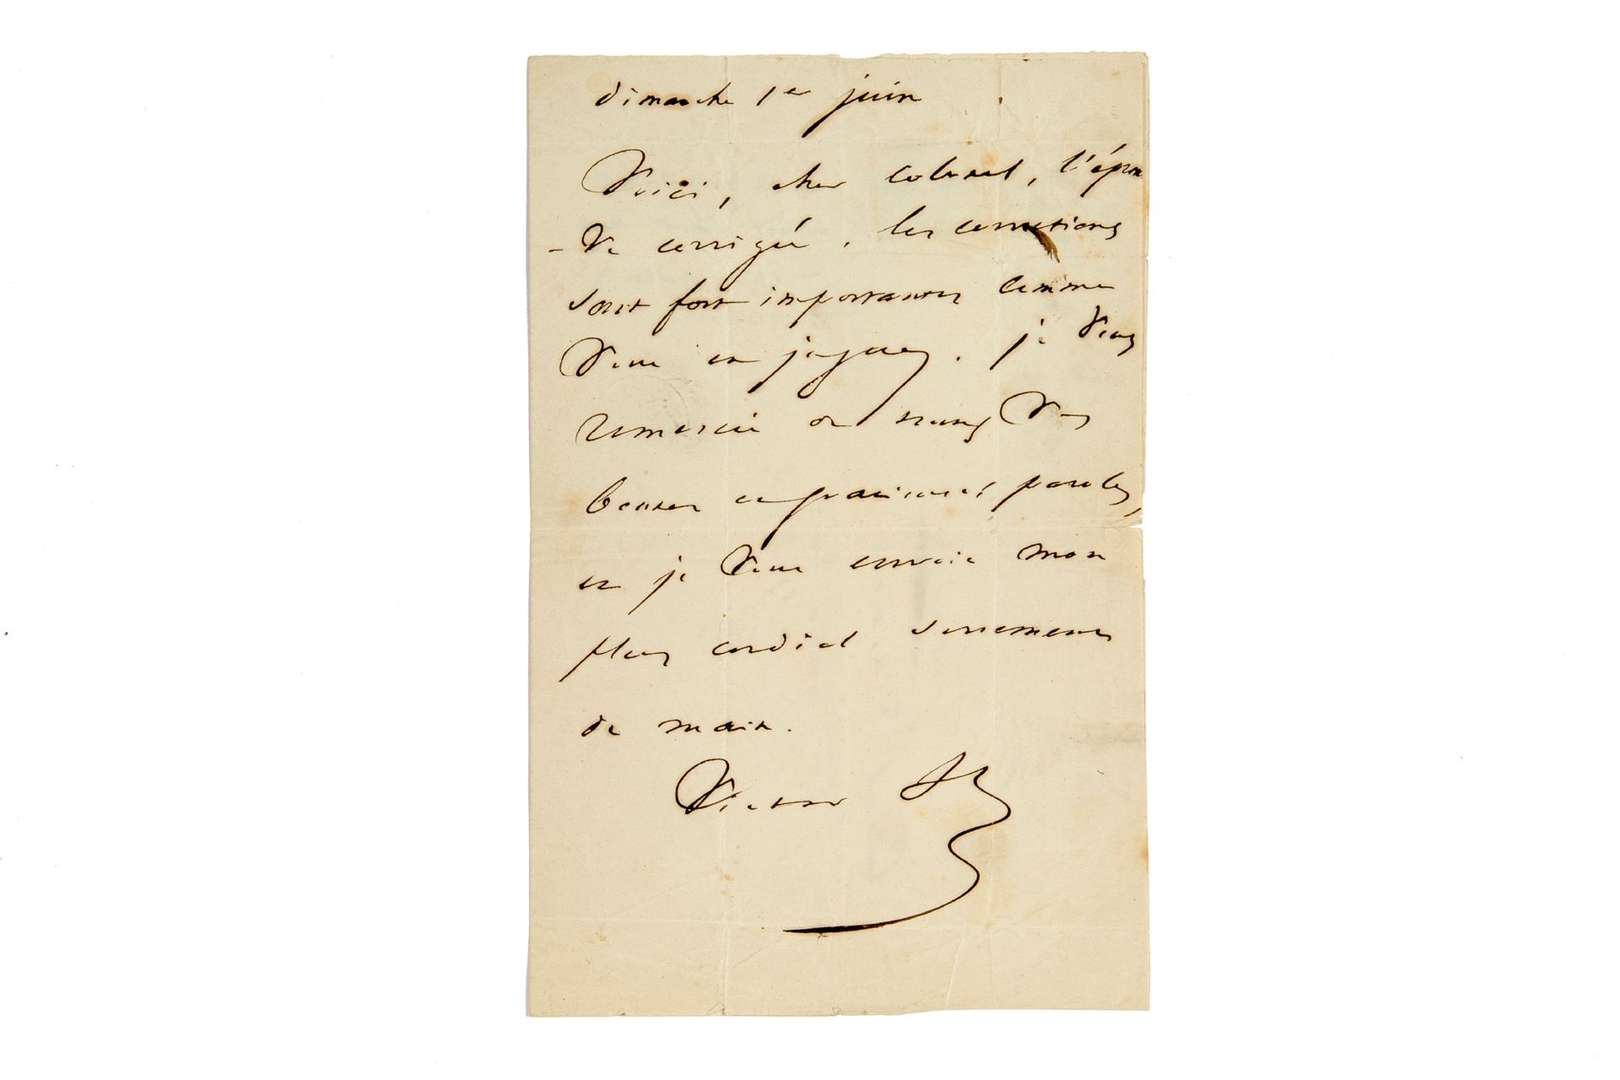 dimanche 1er juin
Voici, cher colonel, l'épreu
-ve corrigée. les corrections
sont fort importantes comme
vous en jugerez. je vous
remercie de vos
bonnes et gracieuses paroles,
et je vous envoie mon
plus cordial serrement
de main.
Victor H